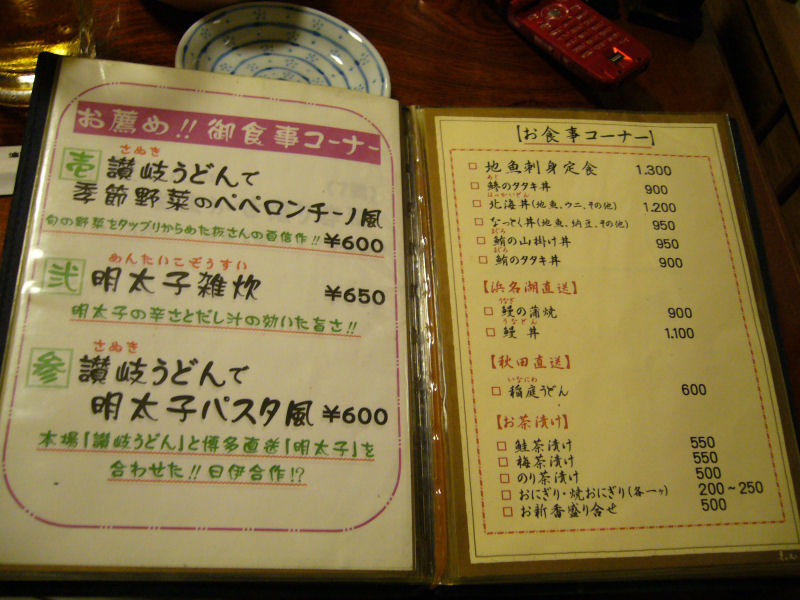 お薦め!! 御食事コーナー
さぬき
壱 讃岐うどんで
季節野菜のペペロンチーノ風
旬の野菜をタップリからめた板さんの自信作!! ¥600
めんたいこぞうすい
弐 明太子雑炊 ¥650
明太子の辛さとだし汁の効いた旨さ!!
さぬき
参 讃岐うどんで
明太子パスタ風 ¥600
本場「讃岐うどん」と博多直送「明太子」を
合わせた!! 日伊合作!?
【お食事コーナー】
□ 地魚刺身定食 1,300
あじ
□ 鯵のタタキ丼 900
ほっかいどん
□ 北海丼(地魚、ウニ、その他) 1,200
□ なっとく丼(地魚、納豆、その他) 950
まぐろ
□ 鮪の山掛け丼 950
まぐろ
□ 鮪のタタキ丼 900
【浜名湖直送】
うなぎ
□ 鰻の蒲焼 900
うなどん
□ 鰻丼 1,100
【秋田直送】
いなにわ
□ 稲庭うどん 600
【お茶漬け】
□ 鮭茶漬け 550
□ 梅茶漬け 550
□ のり茶漬け 500
□ おにぎり・焼おにぎり(各一ヶ) 200～250
□ お新香盛り合せ 500